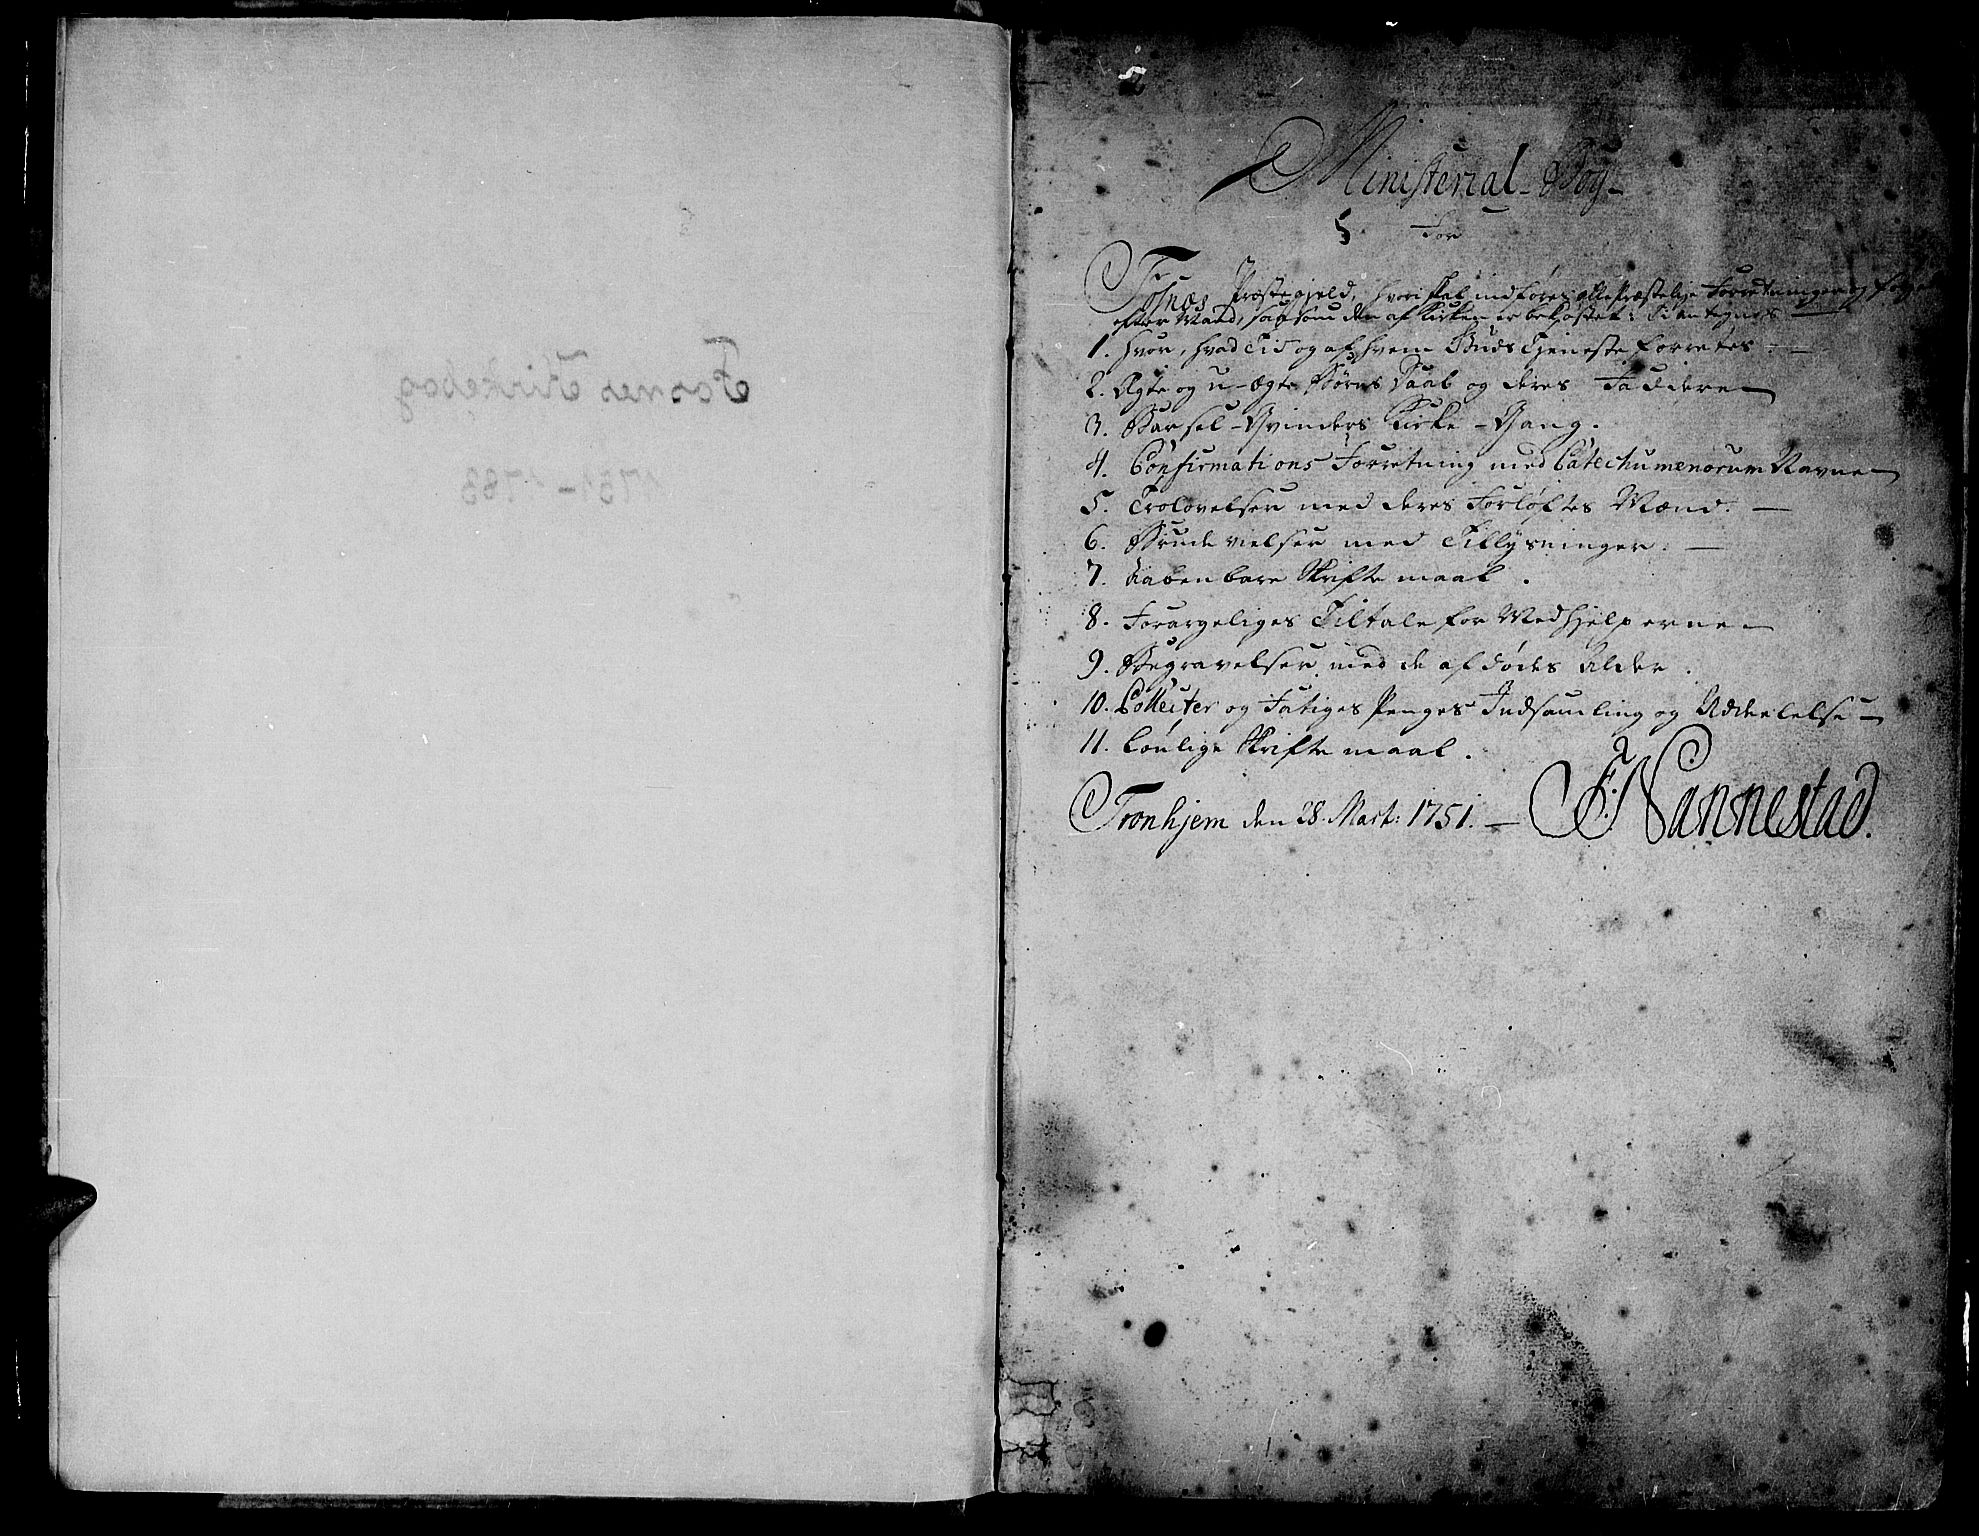 Fosnes Kirkebog
1751-1783
Ministerial-Bog
for
Fosnæs Præstegjeld, hvori skal indføres alle Præstelige Forretninger og
efter Maned, saasom den af Kirken er bekostet:
1. hvor, hvad Tid og af hvem Guds Tjeneste forrettes.
2. Ægte og u-ægte Børns Daab og deres Faddere
3. Barsel-Qvinders Kirke-Gang.
4. Confirmations Forretning med Catechumenorum Navne
5. Trolovelser med deres Forløftes Mænd.
6. Brudevielser med Tillysninger.
7. Aabenbare Skriftemaal.
8. Forargeliges Tiltale for Medhjelperne
9. Begravelser med de afdødes Alder.
10. Collecter og Fatiges Penges Indsamling og Uddeelelse
11. Lønlige Skriftemaal.
Tronhjem den 28. Mart: 1751. F. Nannestad.